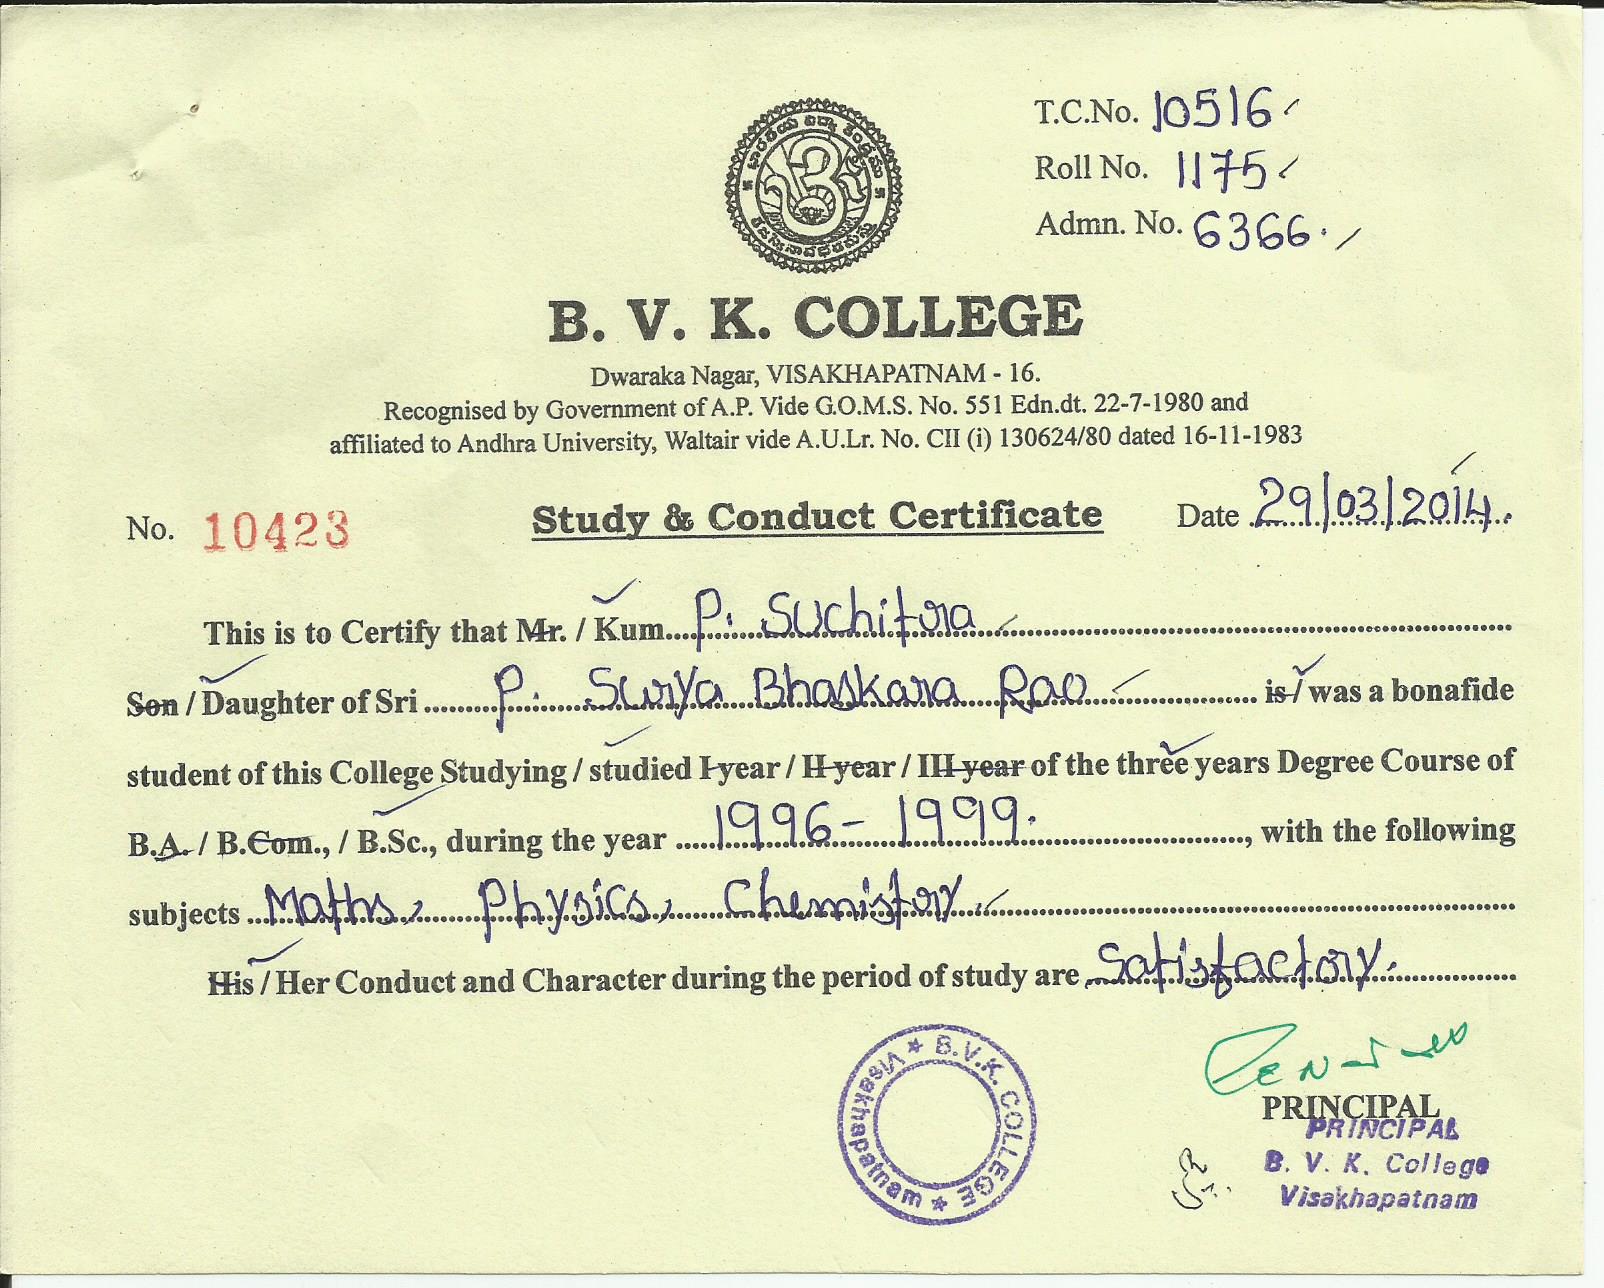 T.C.No. 10516
Roll No. 1175
Admn. No. 6366.
B. V. K. COLLEGE
Dwaraka Nagar, VISAKHAPATNAM - 16.
Recognised by Government of A.P. Vide G.O.M.S. No. 551 Edn.dt. 22-7-1980 and
affiliated to Andhra University, Waltair vide A.U.Lr. No. CII (i) 130624/80 dated 16-11-1983
No. 10423 Study & Conduct Certificate Date 29/03/2014.
This is to Certify that Mr. / Kum P. Suchitra
Son / Daughter of Sri P. Surya Bhaskara Rao is / was a bonafide
student of this College Studying / studied I year / II year / III year of the three years Degree Course of
B.A. / B.Com., / B.Sc., during the year 1996 - 1999. , with the following
subjects Maths, Physics, Chemistry
His / Her Conduct and Character during the period of study are Satisfactory.
B.V.K. COLLEGE ★ Visakhapatnam ★
PRINCIPAL
PRINCIPAL
B. V. K. College
Visakhapatnam